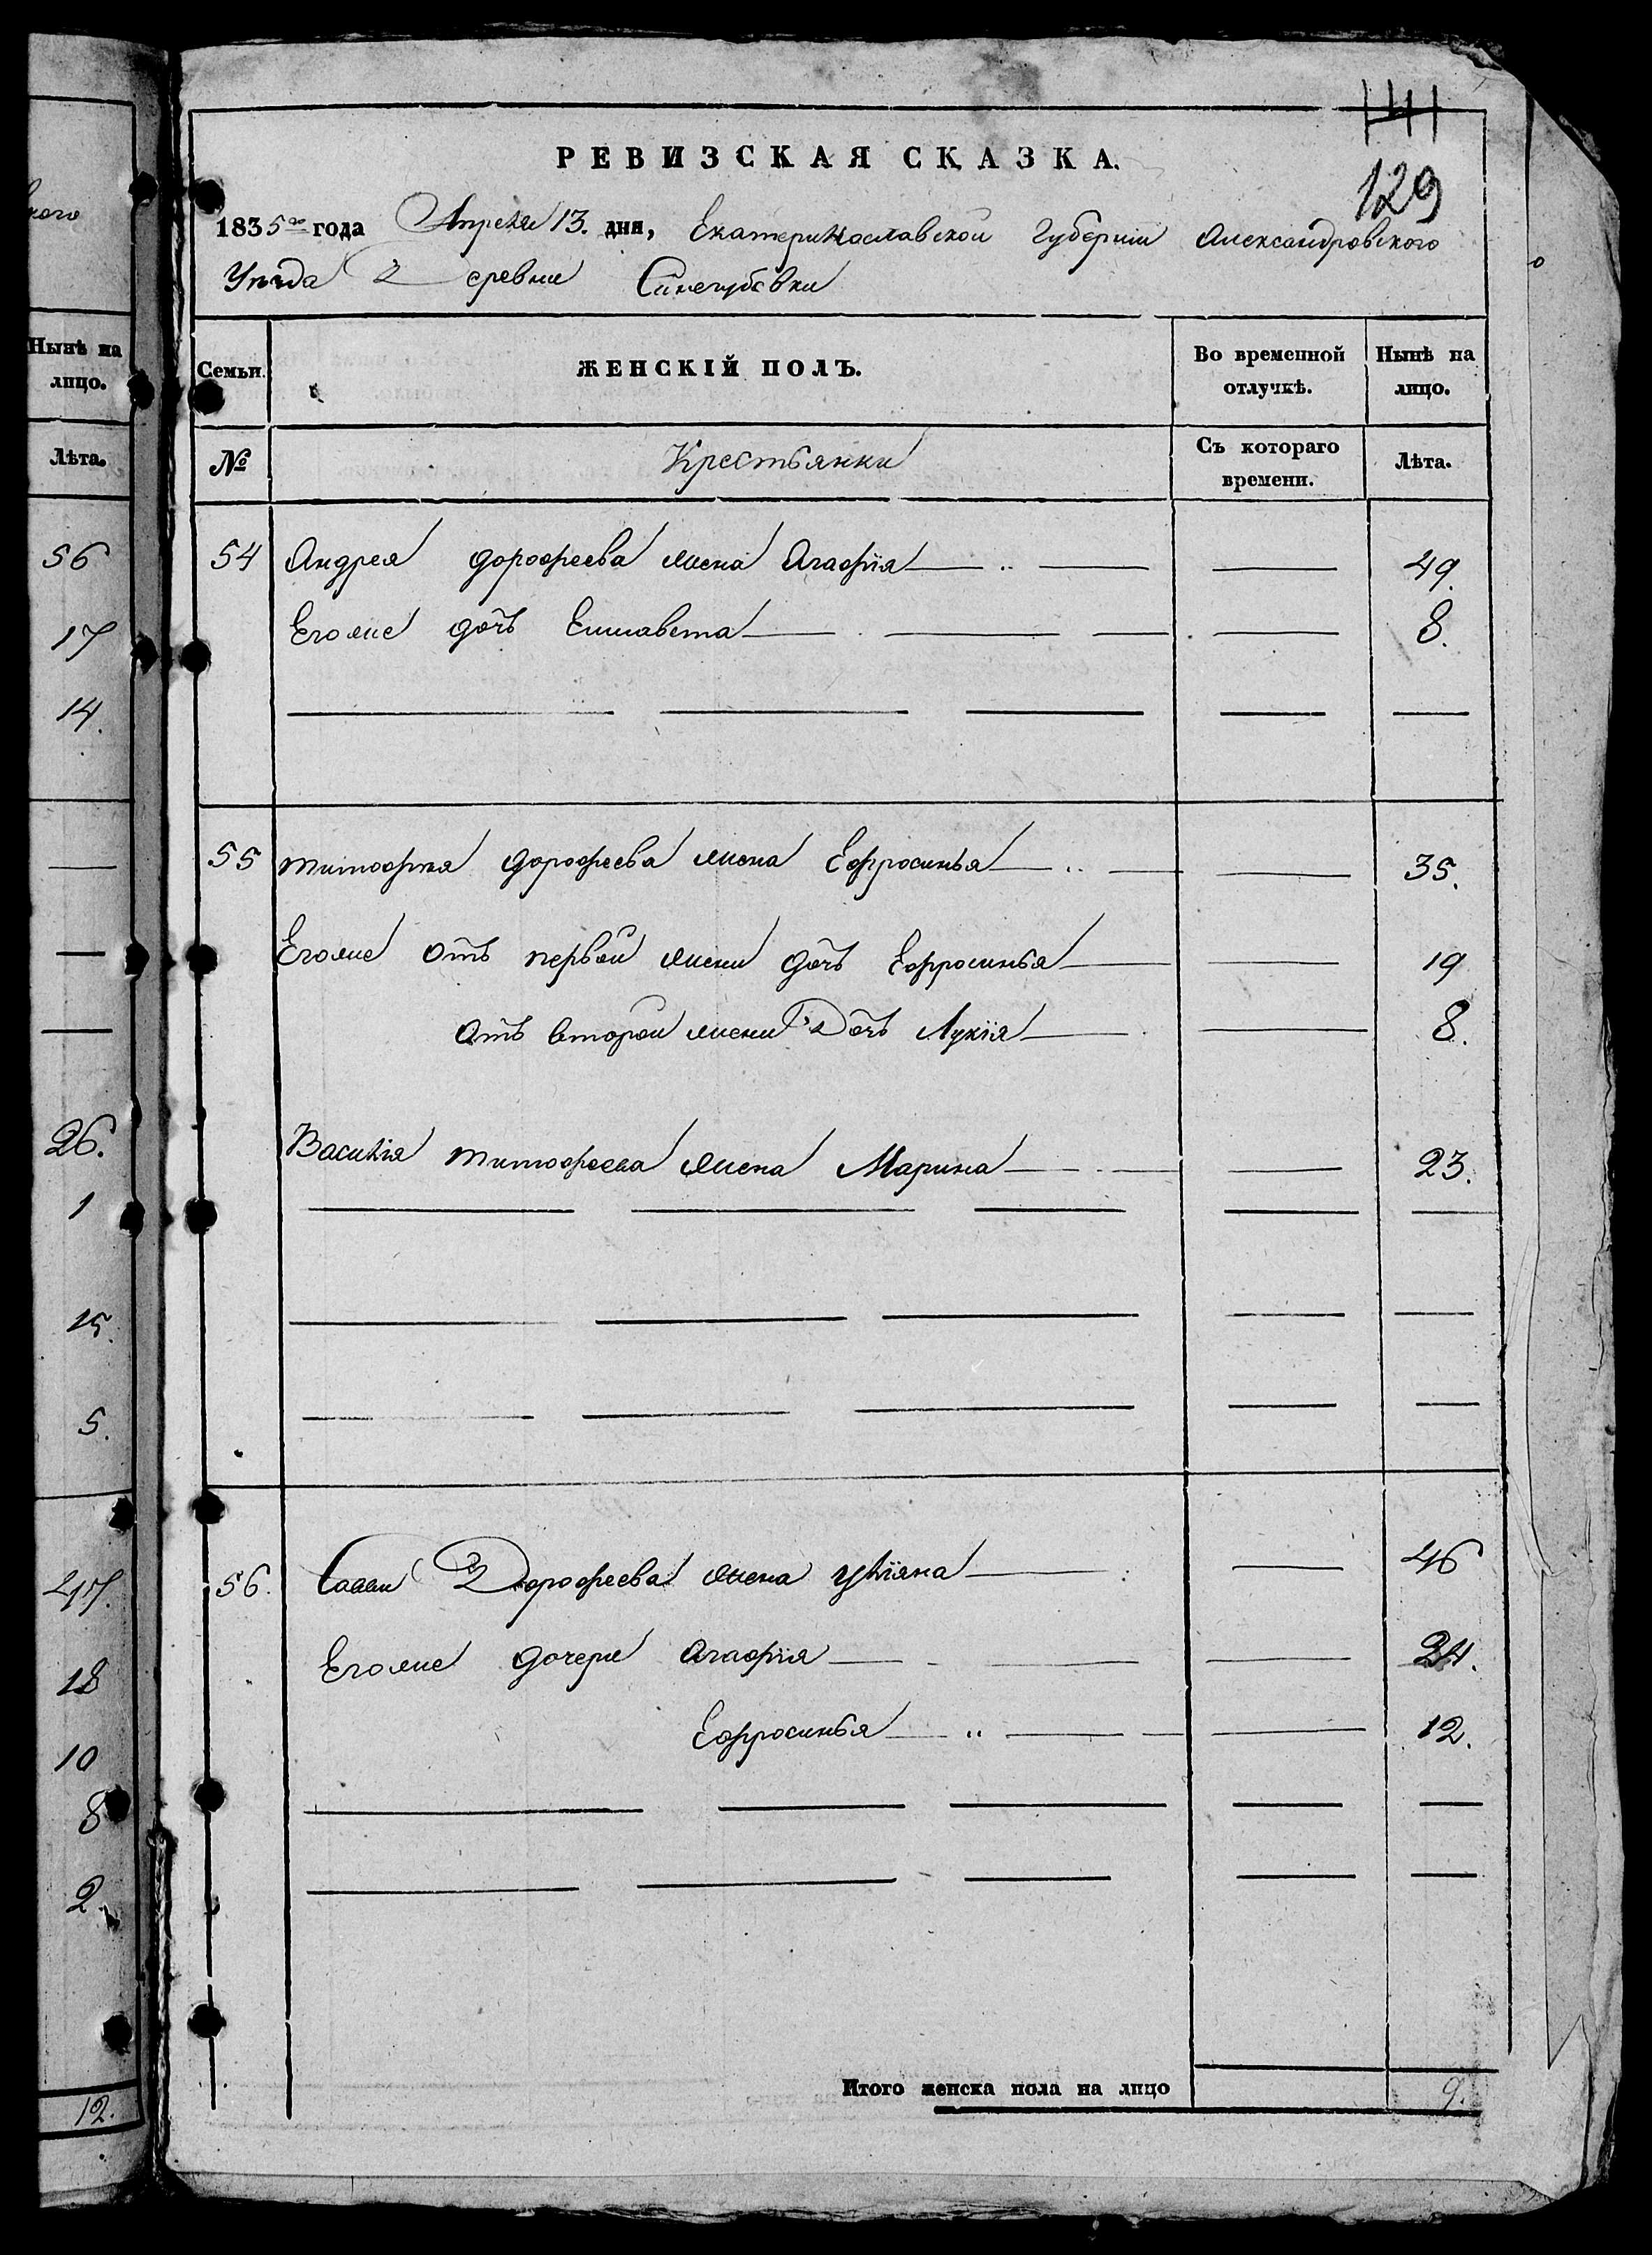 РЕВИЗСКАЯ СКАЗКА.
129
1835го года Апреля 13. дня, Екатеринославской Губернии Александровского
Уезда Деревни Синегубовки
Семьи.
ЖЕНСКІЙ ПОЛЪ.
Во временной отлучкѣ.
Нынѣ на лицо.
№
Крестьянки
Съ котораго времени.
Лѣта.
54 Андрея дорофеева жена Агафія 49.
Егоже дочь Елисавета 8.
55 тимофея дорофеева жена Ефросинья 35.
Егоже отъ первой жены дочь Ефросинья 19
отъ второй жены Дочь Лукія 8.
Василія тимофеева жена Марина 23.
56. Саввы Дорофеева жена уліяна 46
Егоже дочери агафія 24.
Ефросинья 12.
Итого женска пола на лицо 9.
Нынѣ на
лицо.
Лѣта.
56
17
14.
26.
1
15.
5.
47.
18
10
8
2.
12.